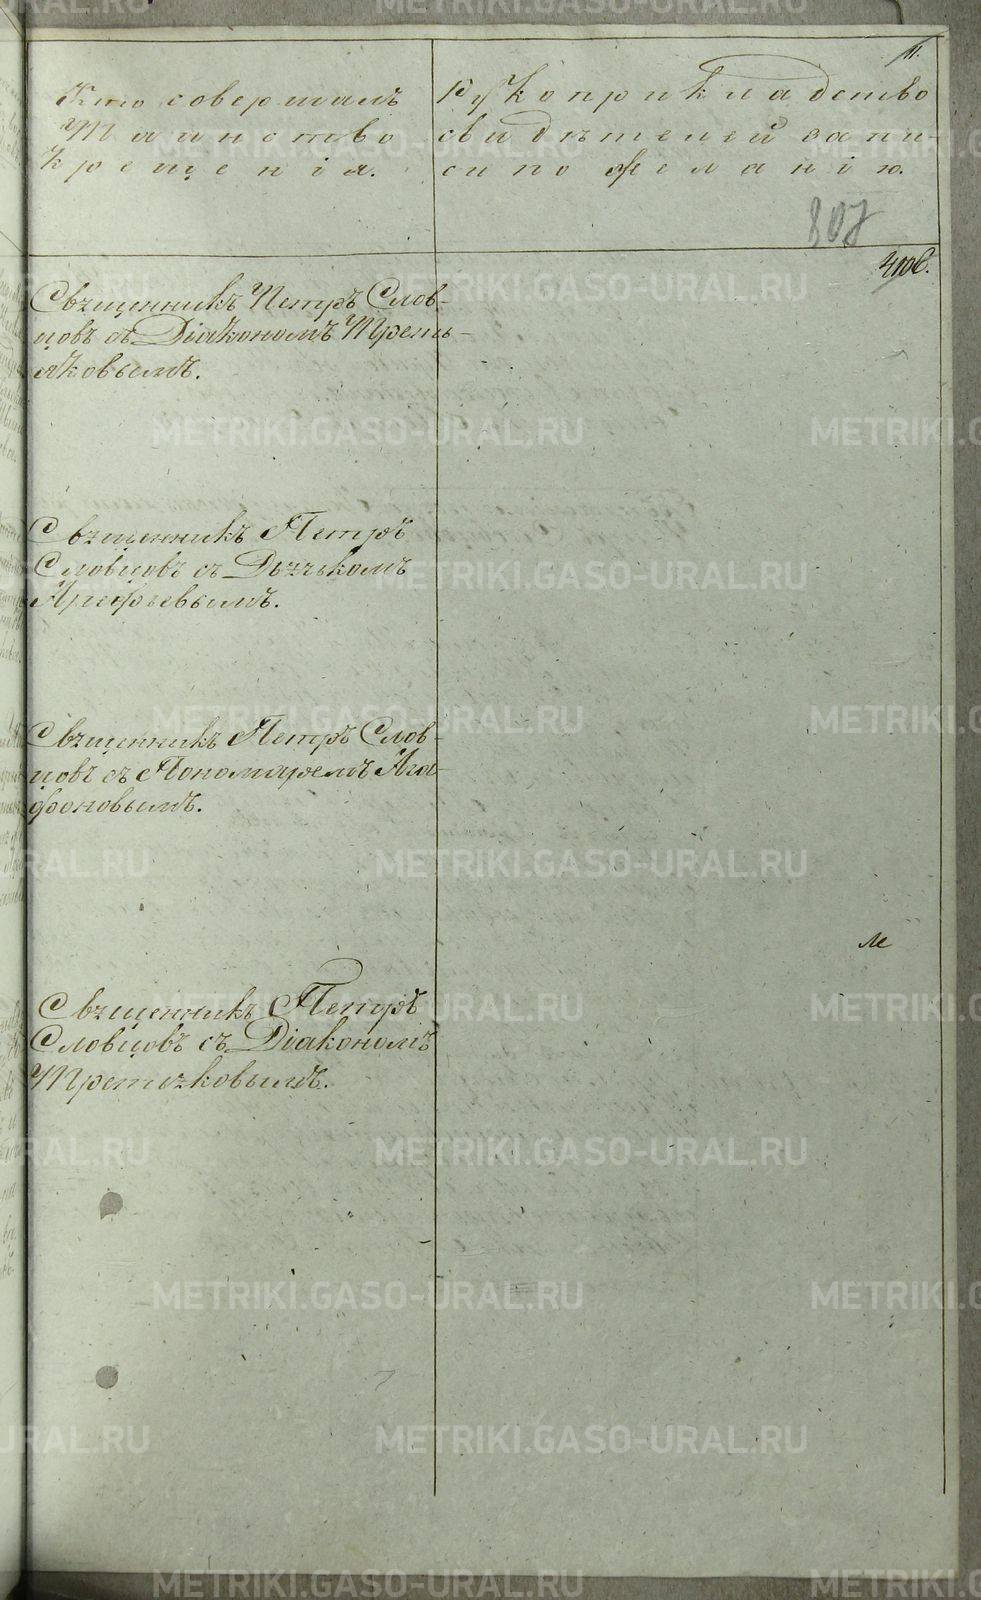 11.
Кто совершалъ
Таинство
Крещенія.
Рукоприкладство
свидѣтелей запи-
си по желанію.
807
410б.
Священникъ Петръ Слов-
цовъ съ Діакономъ Треть-
яковымъ.
Священникъ Петръ
Словцовъ съ Дьячькомъ
Арефьевымъ.
Священникъ Петръ Слов-
цовъ съ Пономаремъ Ага-
фоновымъ.
Священникъ Петръ
Словцовъ съ Діакономъ
Третьяковымъ.
METRIKI.GASO-URAL.RU